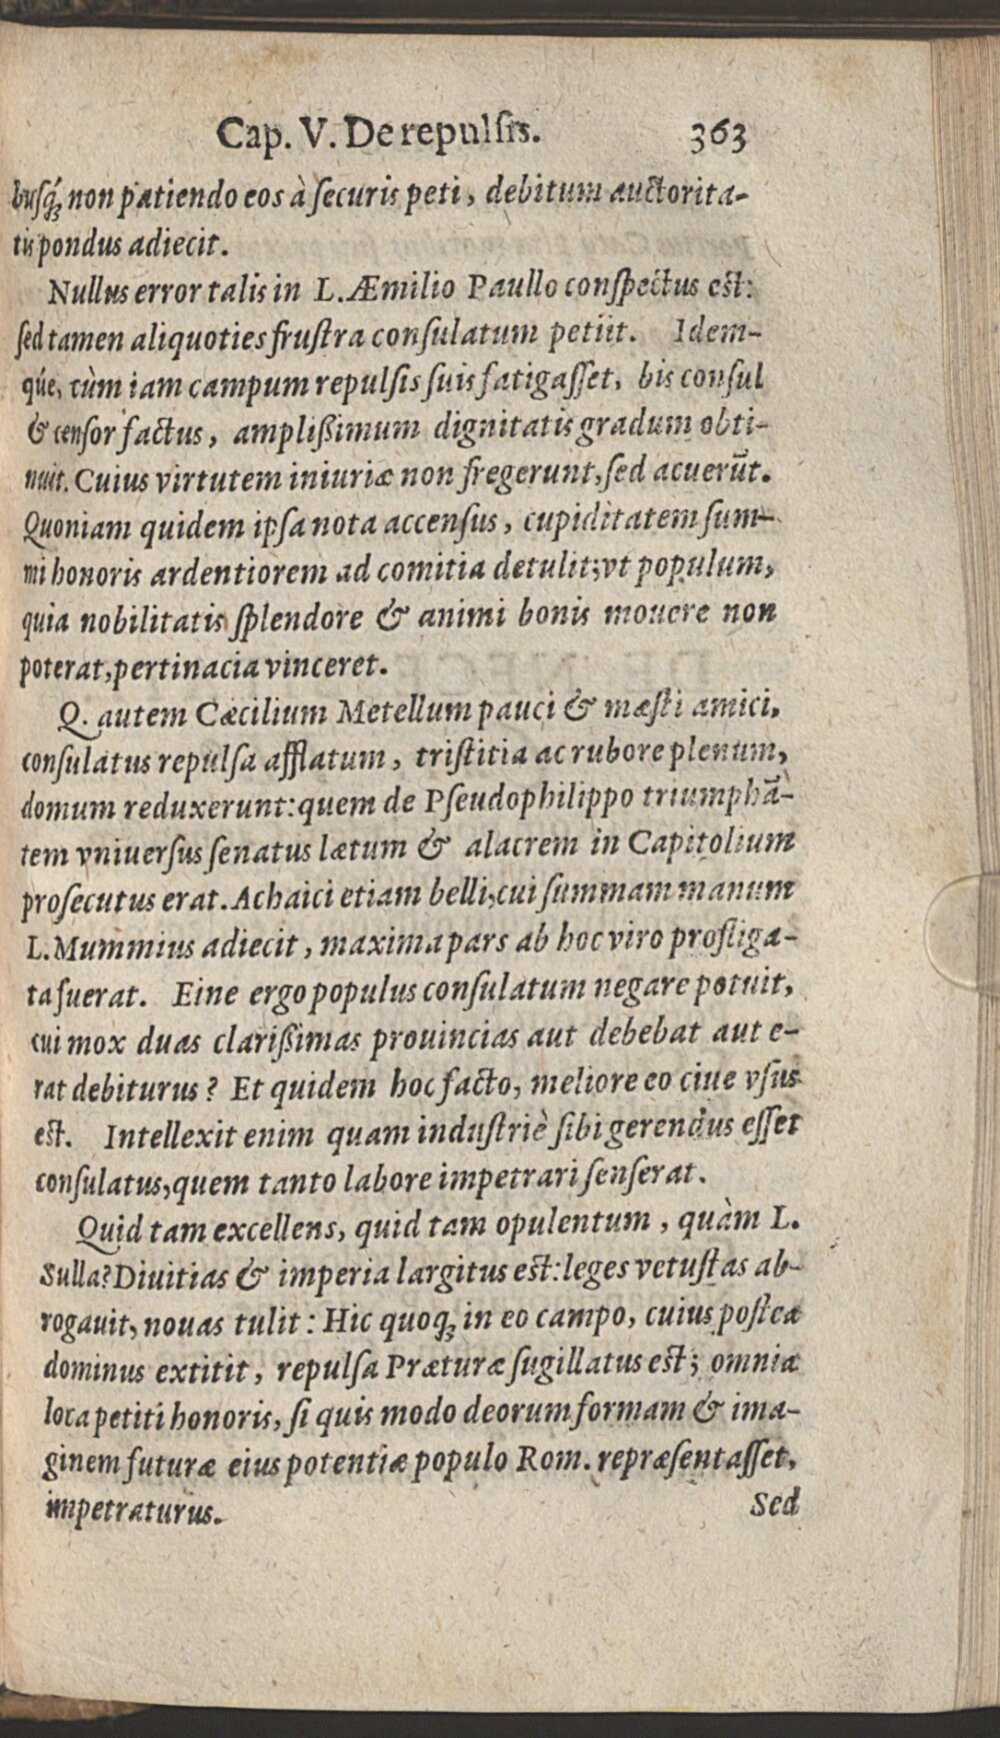 Cap. V. De repulsis. 363
busq́; non patiendo eos à securis peti, debitum auctorita-
tis pondus adiecit.
Nullus error talis in L. Æmilio Paullo conspectus est:
sed tamen aliquoties frustra consulatum petiit. Idem-
qúe, cùm iam campum repulsis suis fatigasset, bis consul
& censor factus, amplißimum dignitatis gradum obti-
nuit. Cuius virtutem iniuriæ non fregerunt, sed acuerūt.
Quoniam quidem ipsa nota accensus, cupiditatem sum-
mi honoris ardentiorem ad comitia detulit; vt populum,
quia nobilitatis splendore & animi bonis mouere non
poterat, pertinacia vinceret.
Q. autem Cæcilium Metellum pauci & mæsti amici,
consulatus repulsa afflatum, tristitia ac rubore plenum,
domum reduxerunt: quem de Pseudophilippo triumphā-
tem vniuersus senatus lætum & alacrem in Capitolium
prosecutus erat. Achaici etiam belli, cui summam manum
L. Mummius adiecit, maxima pars ab hoc viro profliga-
ta fuerat. Eine ergo populus consulatum negare potuit,
cui mox duas clarißimas prouincias aut debebat aut e-
rat debiturus? Et quidem hoc facto, meliore eo ciue vsus
est. Intellexit enim quam industriè sibi gerendus esset
consulatus, quem tanto labore impetrari senserat.
Quid tam excellens, quid tam opulentum, quàm L.
Sulla? Diuitias & imperia largitus est: leges vetustas ab-
rogauit, nouas tulit: Hic quoq; in eo campo, cuius postea
dominus extitit, repulsa Præturæ sugillatus est; omnia
loca petiti honoris, si quis modo deorum formam & ima-
ginem futuræ eius potentiæ populo Rom. repræsentasset,
impetraturus. Sed